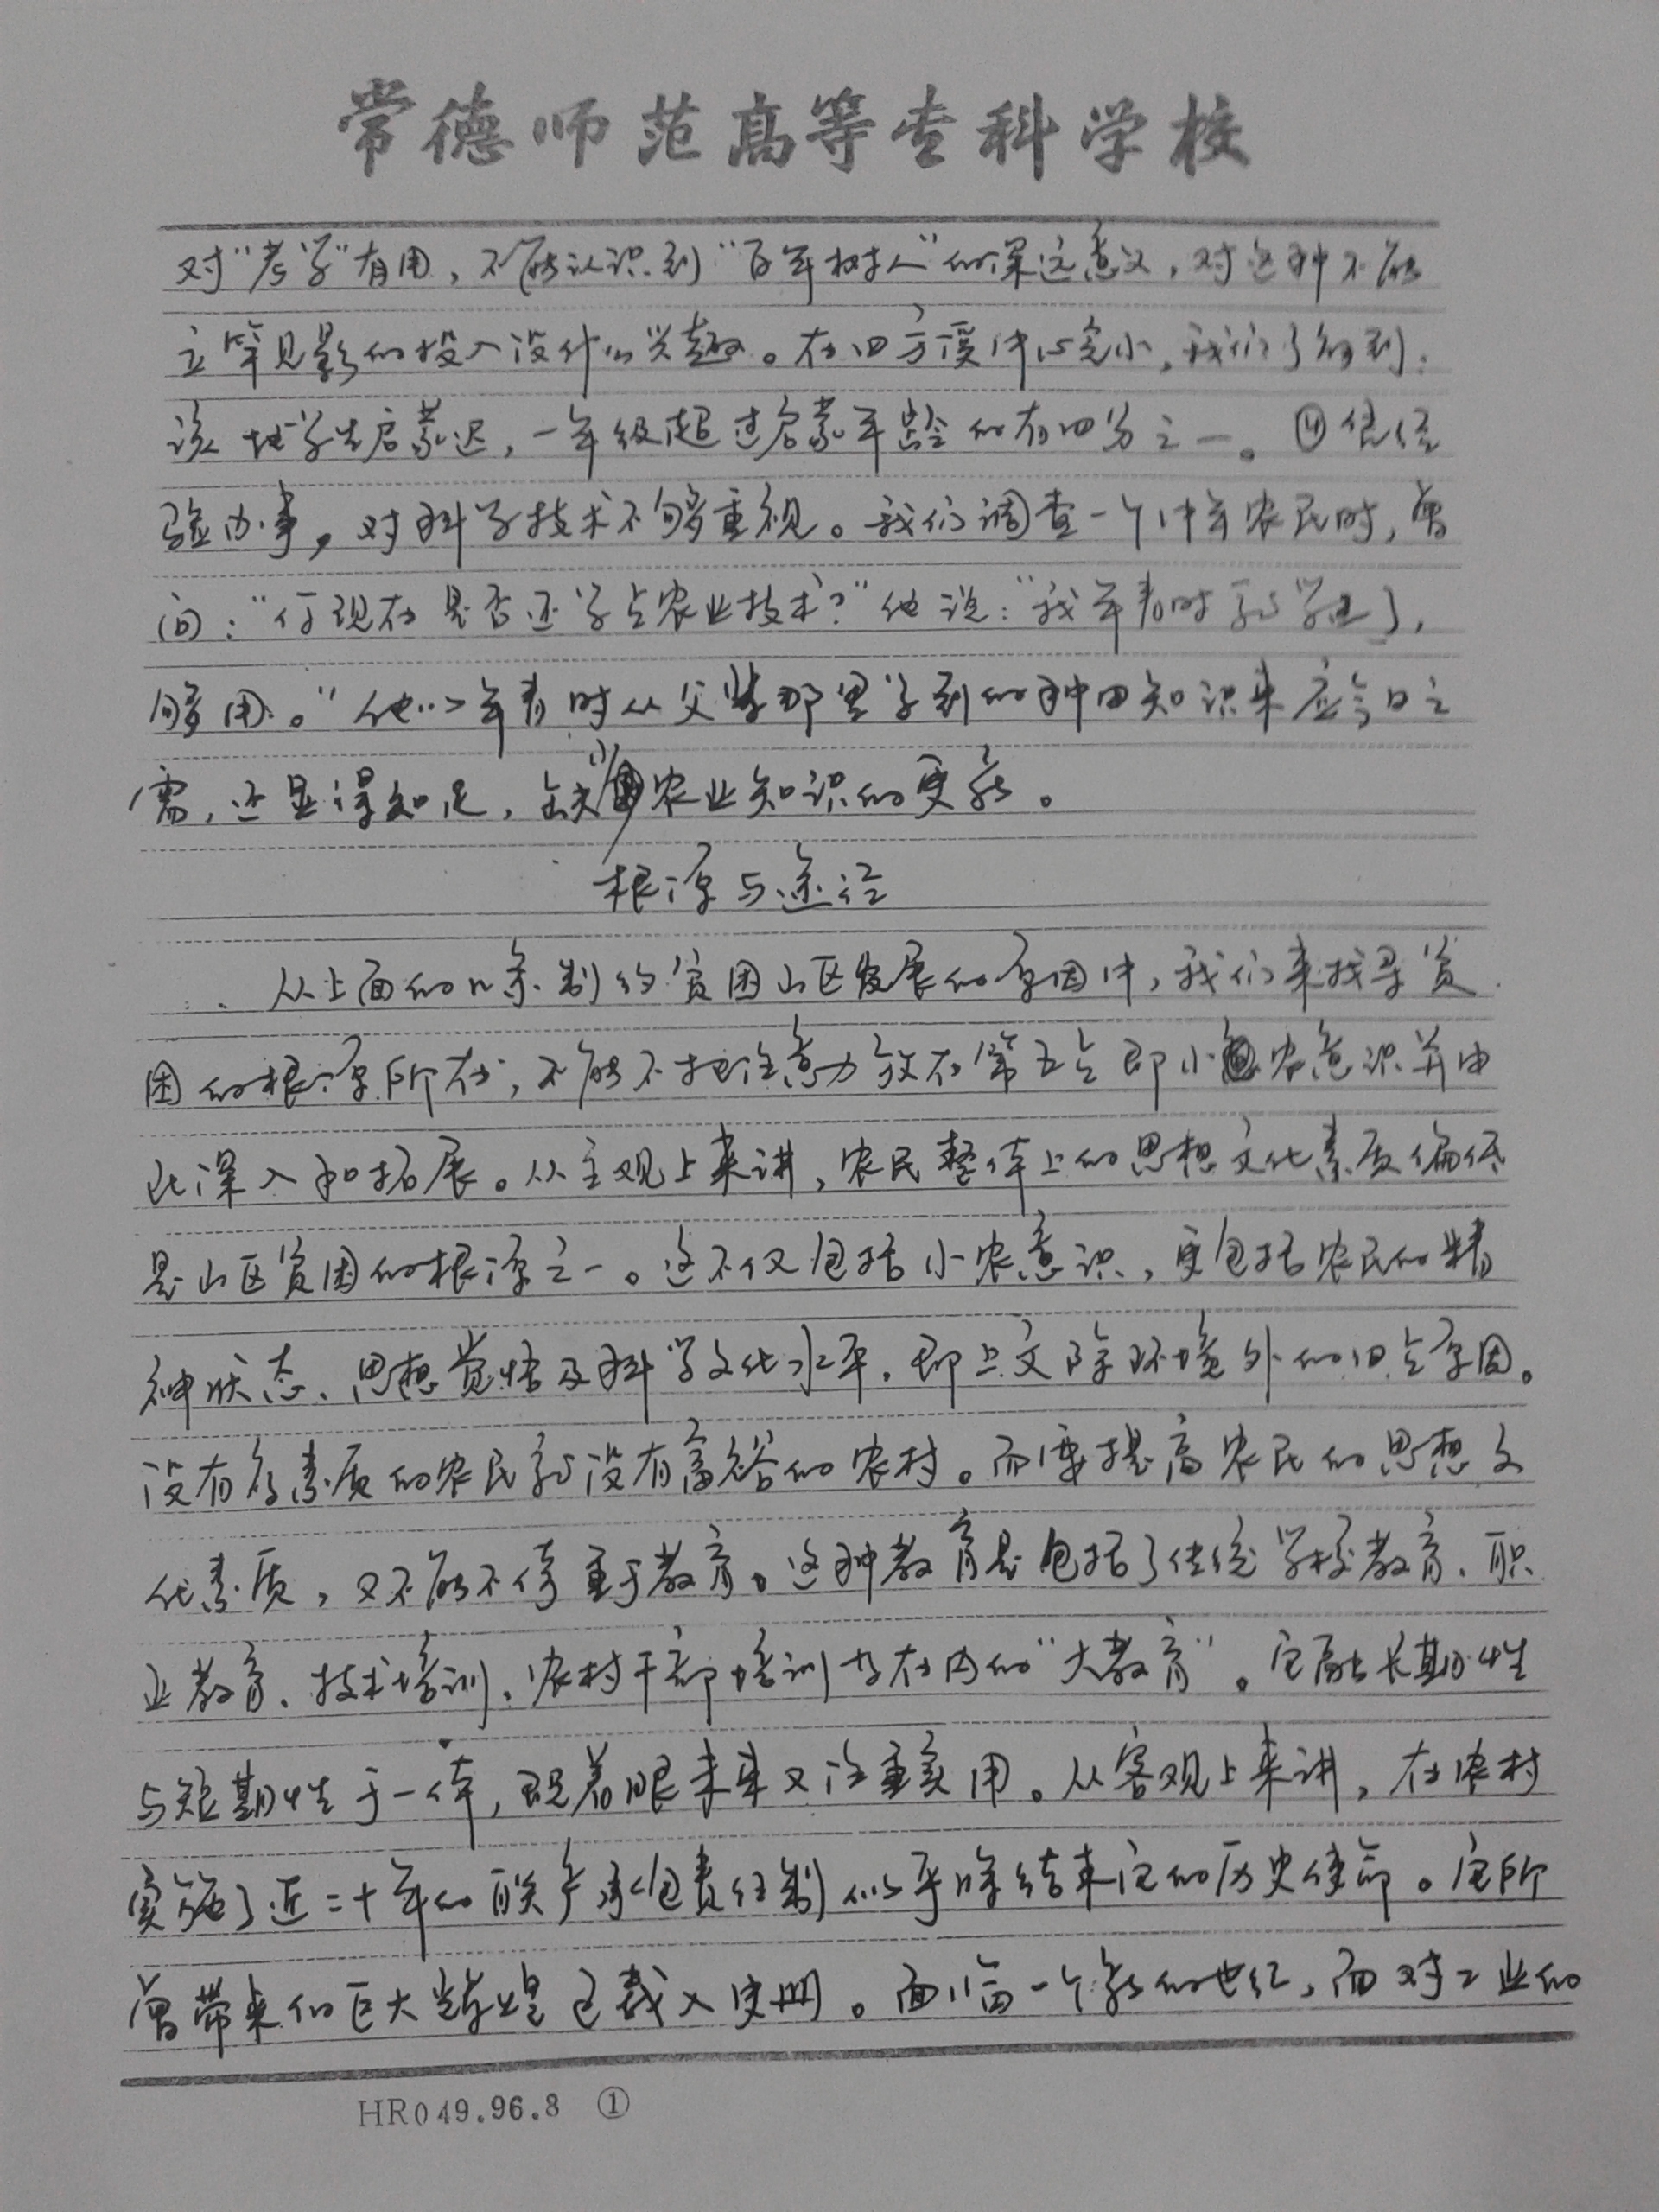 常德师范高等专科学校
对“考学”有用，不能认识到“百年树人”的深远意义，对这种不能
立竿见影的投入没什么兴趣。在四方溪中心完小，我们了解到：
该地学生启蒙迟，一年级超过启蒙年龄的有四分之一。④凭经
验办事，对科学技术不够重视。我们调查一个中年农民时，曾
问：“你现在是否还学点农业技术？”他说：“我年青时就学过了，
够用。”他以年青时从父辈那里学到的种田知识来应今日之
需，还显得知足，缺少农业知识的更新。
根源与途径
从上面的几条制约贫困山区发展的原因中，我们来找寻贫
困的根源所在，不能不把注意力放在第五点即小农意识并由
此深入和拓展。从主观上来讲，农民整体上的思想文化素质偏低
是山区贫困的根源之一。这不仅包括小农意识，更包括农民的精
神状态、思想觉悟及科学文化水平，即上文除环境外的四点原因。
没有高素质的农民就没有富裕的农村。而要提高农民的思想文
化素质，又不能不倚重于教育。这种教育是包括了传统学校教育、职
业教育、技术培训、农村干部培训等在内的“大教育”。它融长期性
与短期性于一体，既着眼未来又注重实用。从客观上来讲，在农村
实施了近二十年的联产承包责任制似乎将结束它的历史使命。它所
曾带来的巨大辉煌已载入史册。面临一个新的世纪，面对工业的
HR049.96.8 ①